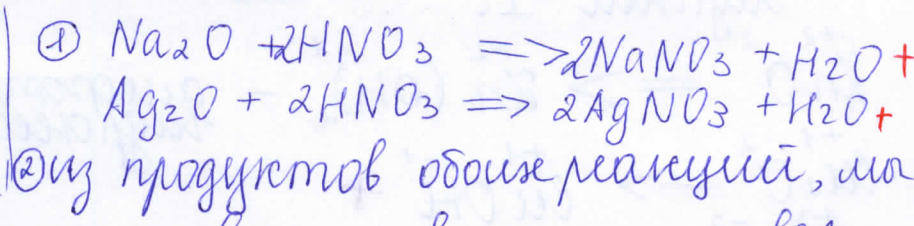 ① Na2O + 2HNO3 => 2NaNO3 + H2O +
Ag2O + 2HNO3 => 2AgNO3 + H2O +
② из продуктов обоих реакций, мы